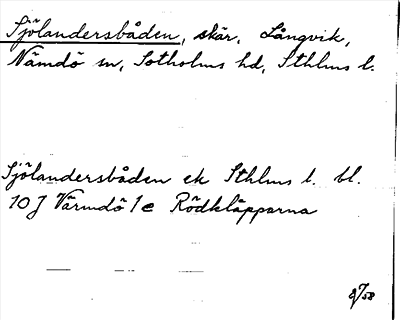 Sjölandersbåden, skär, Långvik,
Nämdö sn, Sotholms hd, Sthlms l.
Sjölandersbåden ek Sthlms l. bl.
10 J Värmdö 1 e Rödkläpparna